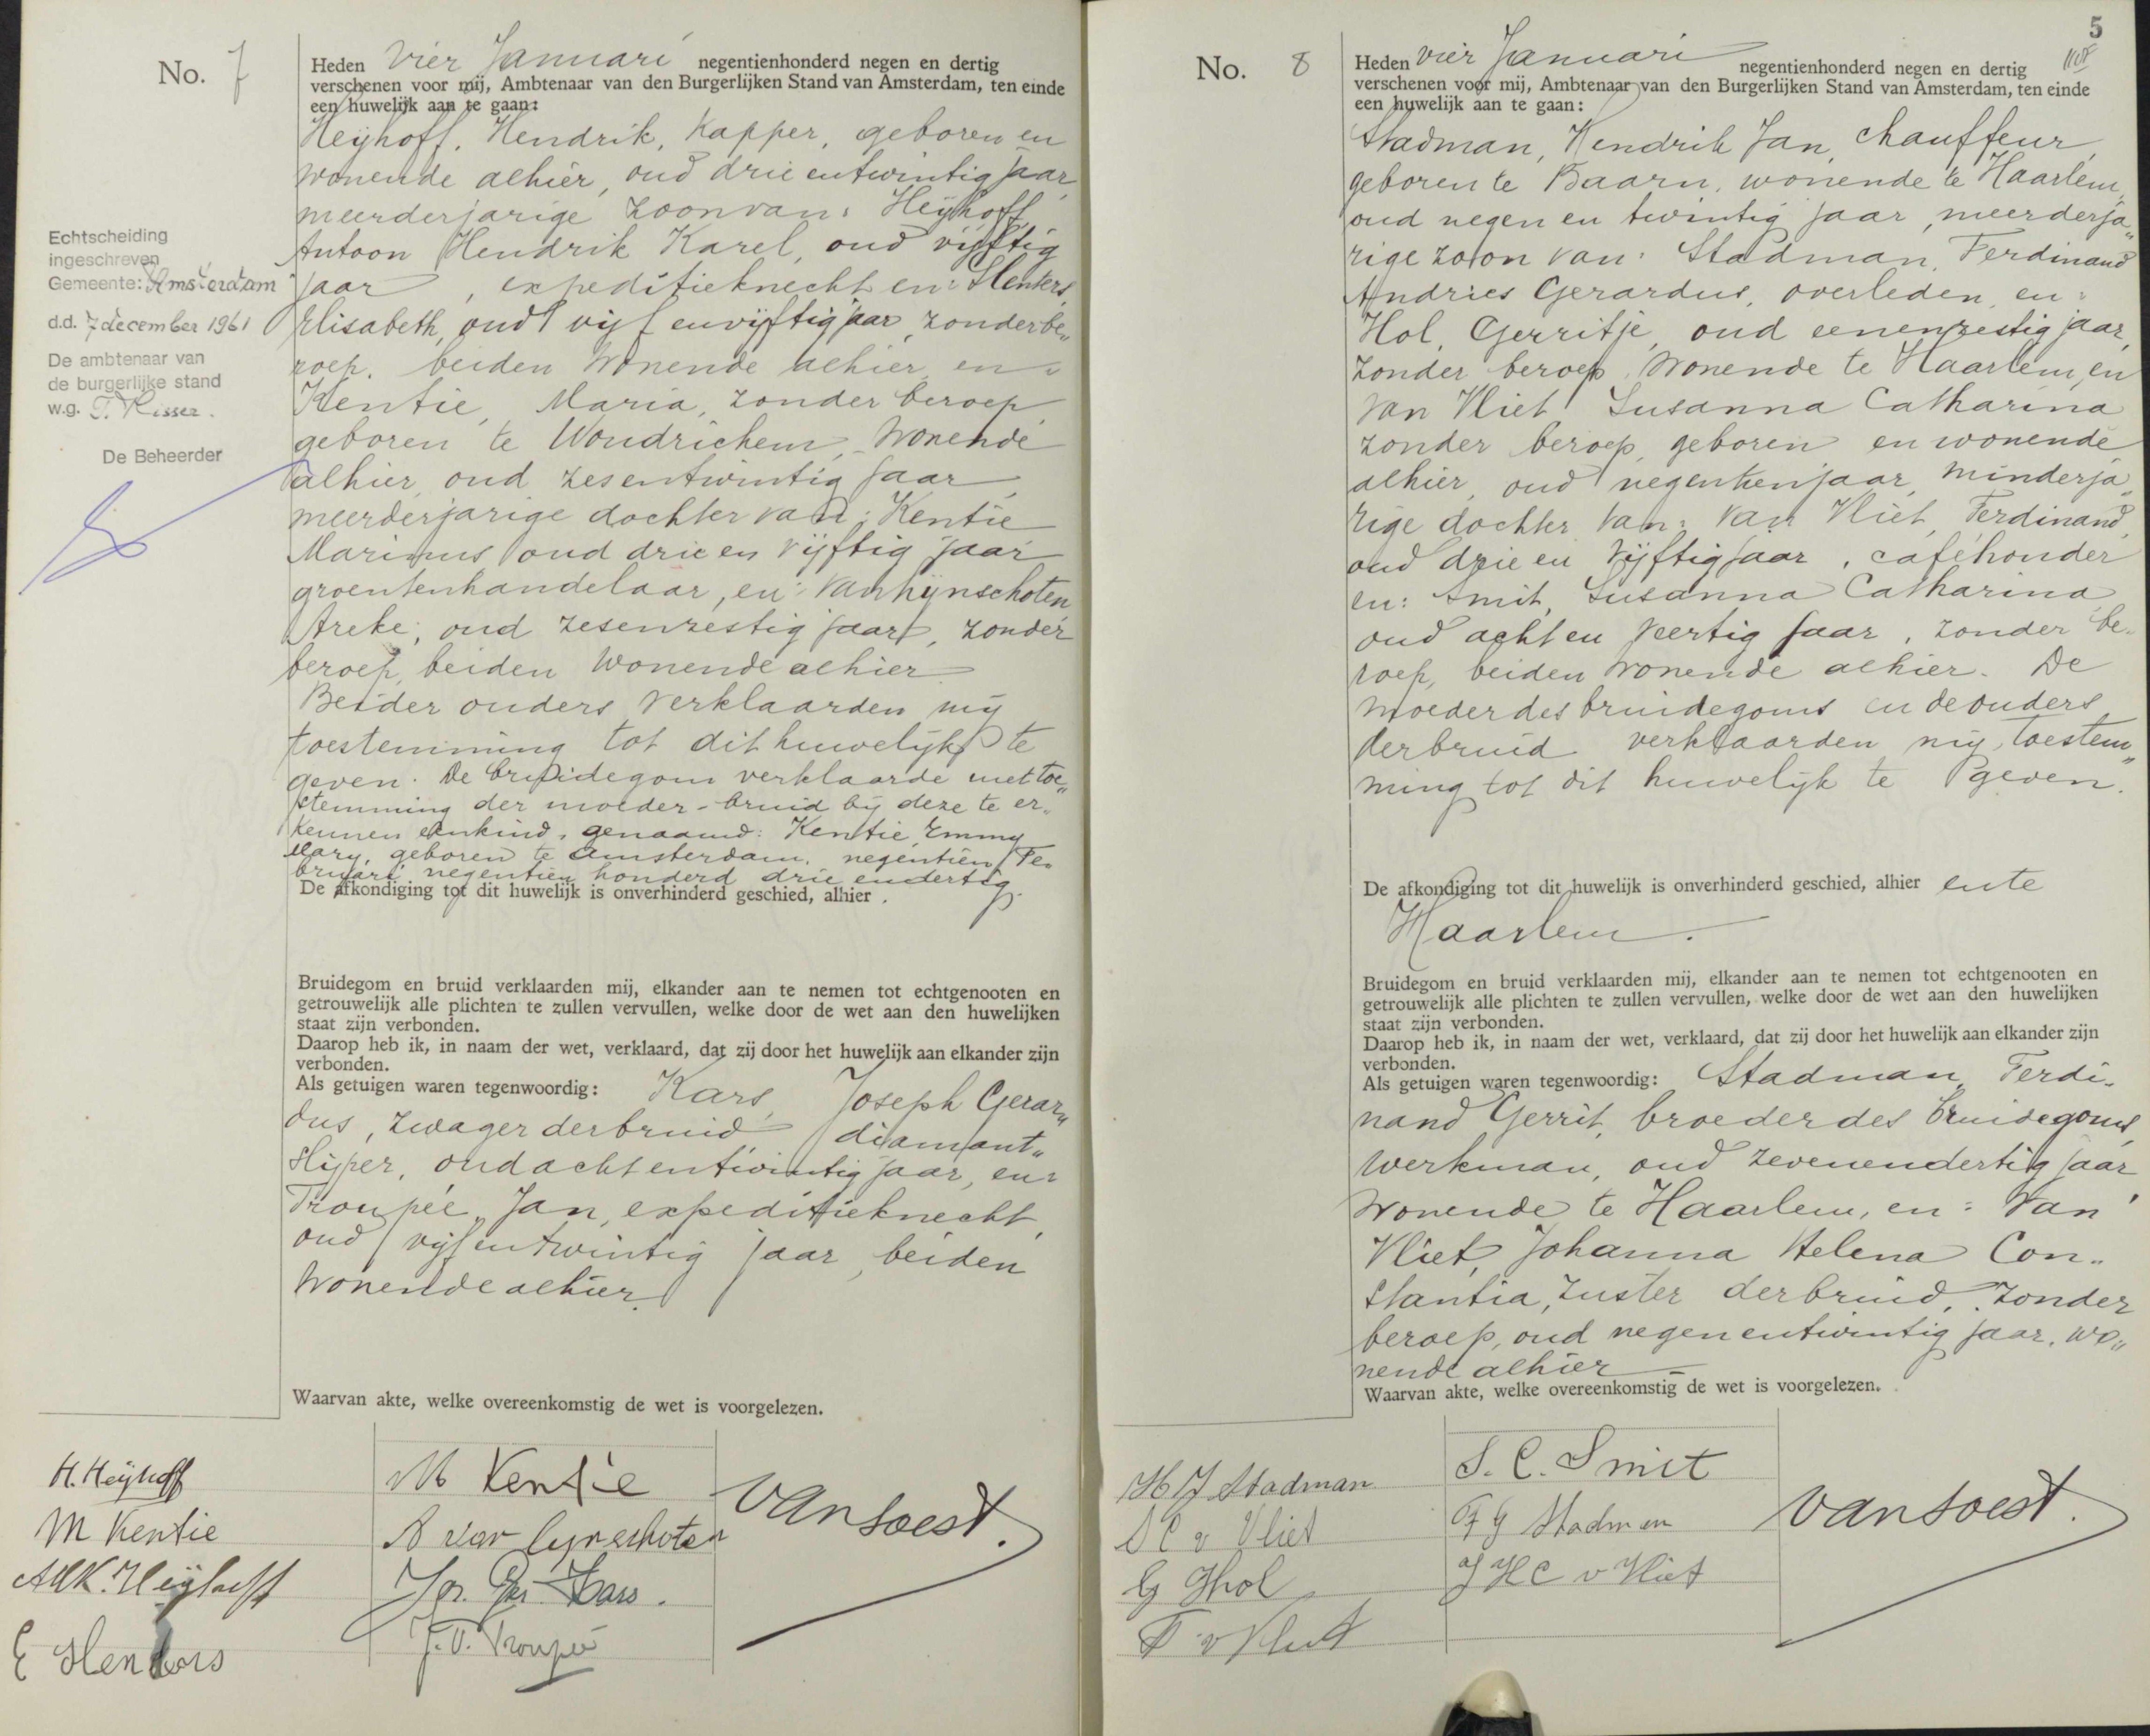 No. 7
Heden vier Januari negentienhonderd negen en dertig
verschenen voor mij, Ambtenaar van den Burgerlijken Stand van Amsterdam, ten einde
een huwelijk aan te gaan:
Heijhoff, Hendrik, kapper, geboren en
wonende alhier, oud drie entwintig jaar,
meerderjarige zoon van: Heijhoff,
Antoon Hendrik Karel, oud vijftig
jaar, expeditieknecht en: Slenters,
Elisabeth, oud vijf envijftig jaar, zonder be„
roep, beiden wonende alhier en:
Kentie, Maria, zonder beroep,
geboren te Woudrichem, wonende
alhier, oud zesentwintig jaar,
meerderjarige dochter van: Kentie
Marinus oud drie en vijftig jaar
groentenhandelaar, en: van Lijnschoten
Areke, oud zesenzestig jaar, zonder
beroep, beiden wonende alhier
Beider ouders verklaarden mij
toestemming tot dit huwelijk te
geven. De bruidegom verklaarde met toe„
stemming der moeder-bruid bij deze te er„
kennen een kind, genaamd: Kentie, Emmy
Mary, geboren te Amsterdam, negentien Fe„
bruari negentien honderd drie endertig.
De afkondiging tot dit huwelijk is onverhinderd geschied, alhier.
Bruidegom en bruid verklaarden mij, elkander aan te nemen tot echtgenooten en
getrouwelijk alle plichten te zullen vervullen, welke door de wet aan den huwelijken
staat zijn verbonden.
Daarop heb ik, in naam der wet, verklaard, dat zij door het huwelijk aan elkander zijn
verbonden.
Als getuigen waren tegenwoordig: Kars, Joseph Gerar„
dus, zwager der bruid, diamant„
slijper, oud acht entwintig jaar, en:
Troupée, Jan, expeditieknecht,
oud vijf entwintig jaar, beiden
wonende alhier.
Waarvan akte, welke overeenkomstig de wet is voorgelezen.
Echtscheiding
ingeschreven
Gemeente: Amsterdam
d.d. 7 december 1961
De ambtenaar van
de burgerlijke stand
w.g. T. Visser.
De Beheerder
H. Heijhoff
M Kentie
AHK. Heijhoff
E Slenters
M Kentie
A van Lijnschoten
Jos. Ger. Kars.
J. V. Troupée
van Soest.
5
No. 8
Heden vier Januari negentienhonderd negen en dertig
verschenen voor mij, Ambtenaar van den Burgerlijken Stand van Amsterdam, ten einde
een huwelijk aan te gaan:
Stadman, Hendrik Jan, chauffeur,
geboren te Baarn, wonende te Haarlem,
oud negen en twintig jaar, meerderja„
rige zoon van: Stadman, Ferdinand
Andries Gerardus, overleden, en:
Hol, Gerritje, oud eenenzestig jaar,
zonder beroep, wonende te Haarlem, en
van Vliet Susanna Catharina
zonder beroep, geboren en wonende
alhier, oud negentien jaar, minderja„
rige dochter van: van Vliet, Ferdinand,
oud drie en vijftig jaar, caféhouder
en: Smit, Susanna Catharina,
oud acht en veertig jaar, zonder be„
roep, beiden wonende alhier. De
moeder des bruidegoms en de ouders
der bruid verklaarden mij, toestem„
ming tot dit huwelijk te geven.
De afkondiging tot dit huwelijk is onverhinderd geschied, alhier en te
Haarlem.
Bruidegom en bruid verklaarden mij, elkander aan te nemen tot echtgenooten en
getrouwelijk alle plichten te zullen vervullen, welke door de wet aan den huwelijken
staat zijn verbonden.
Daarop heb ik, in naam der wet, verklaard, dat zij door het huwelijk aan elkander zijn
verbonden.
Als getuigen waren tegenwoordig: Stadman, Ferdi„
nand Gerrit, broeder des bruidegoms,
werkman, oud zevenendertig jaar,
wonende te Haarlem, en: van
Vliet, Johanna Helena Con„
stantia, zuster der bruid, zonder
beroep, oud negen entwintig jaar, wo„
nende alhier
Waarvan akte, welke overeenkomstig de wet is voorgelezen.
H J Stadman
S C v Vliet
G Ghol
F v Vliet
S. C. Smit
F G Stadman
J H C v Vliet
van Soest.